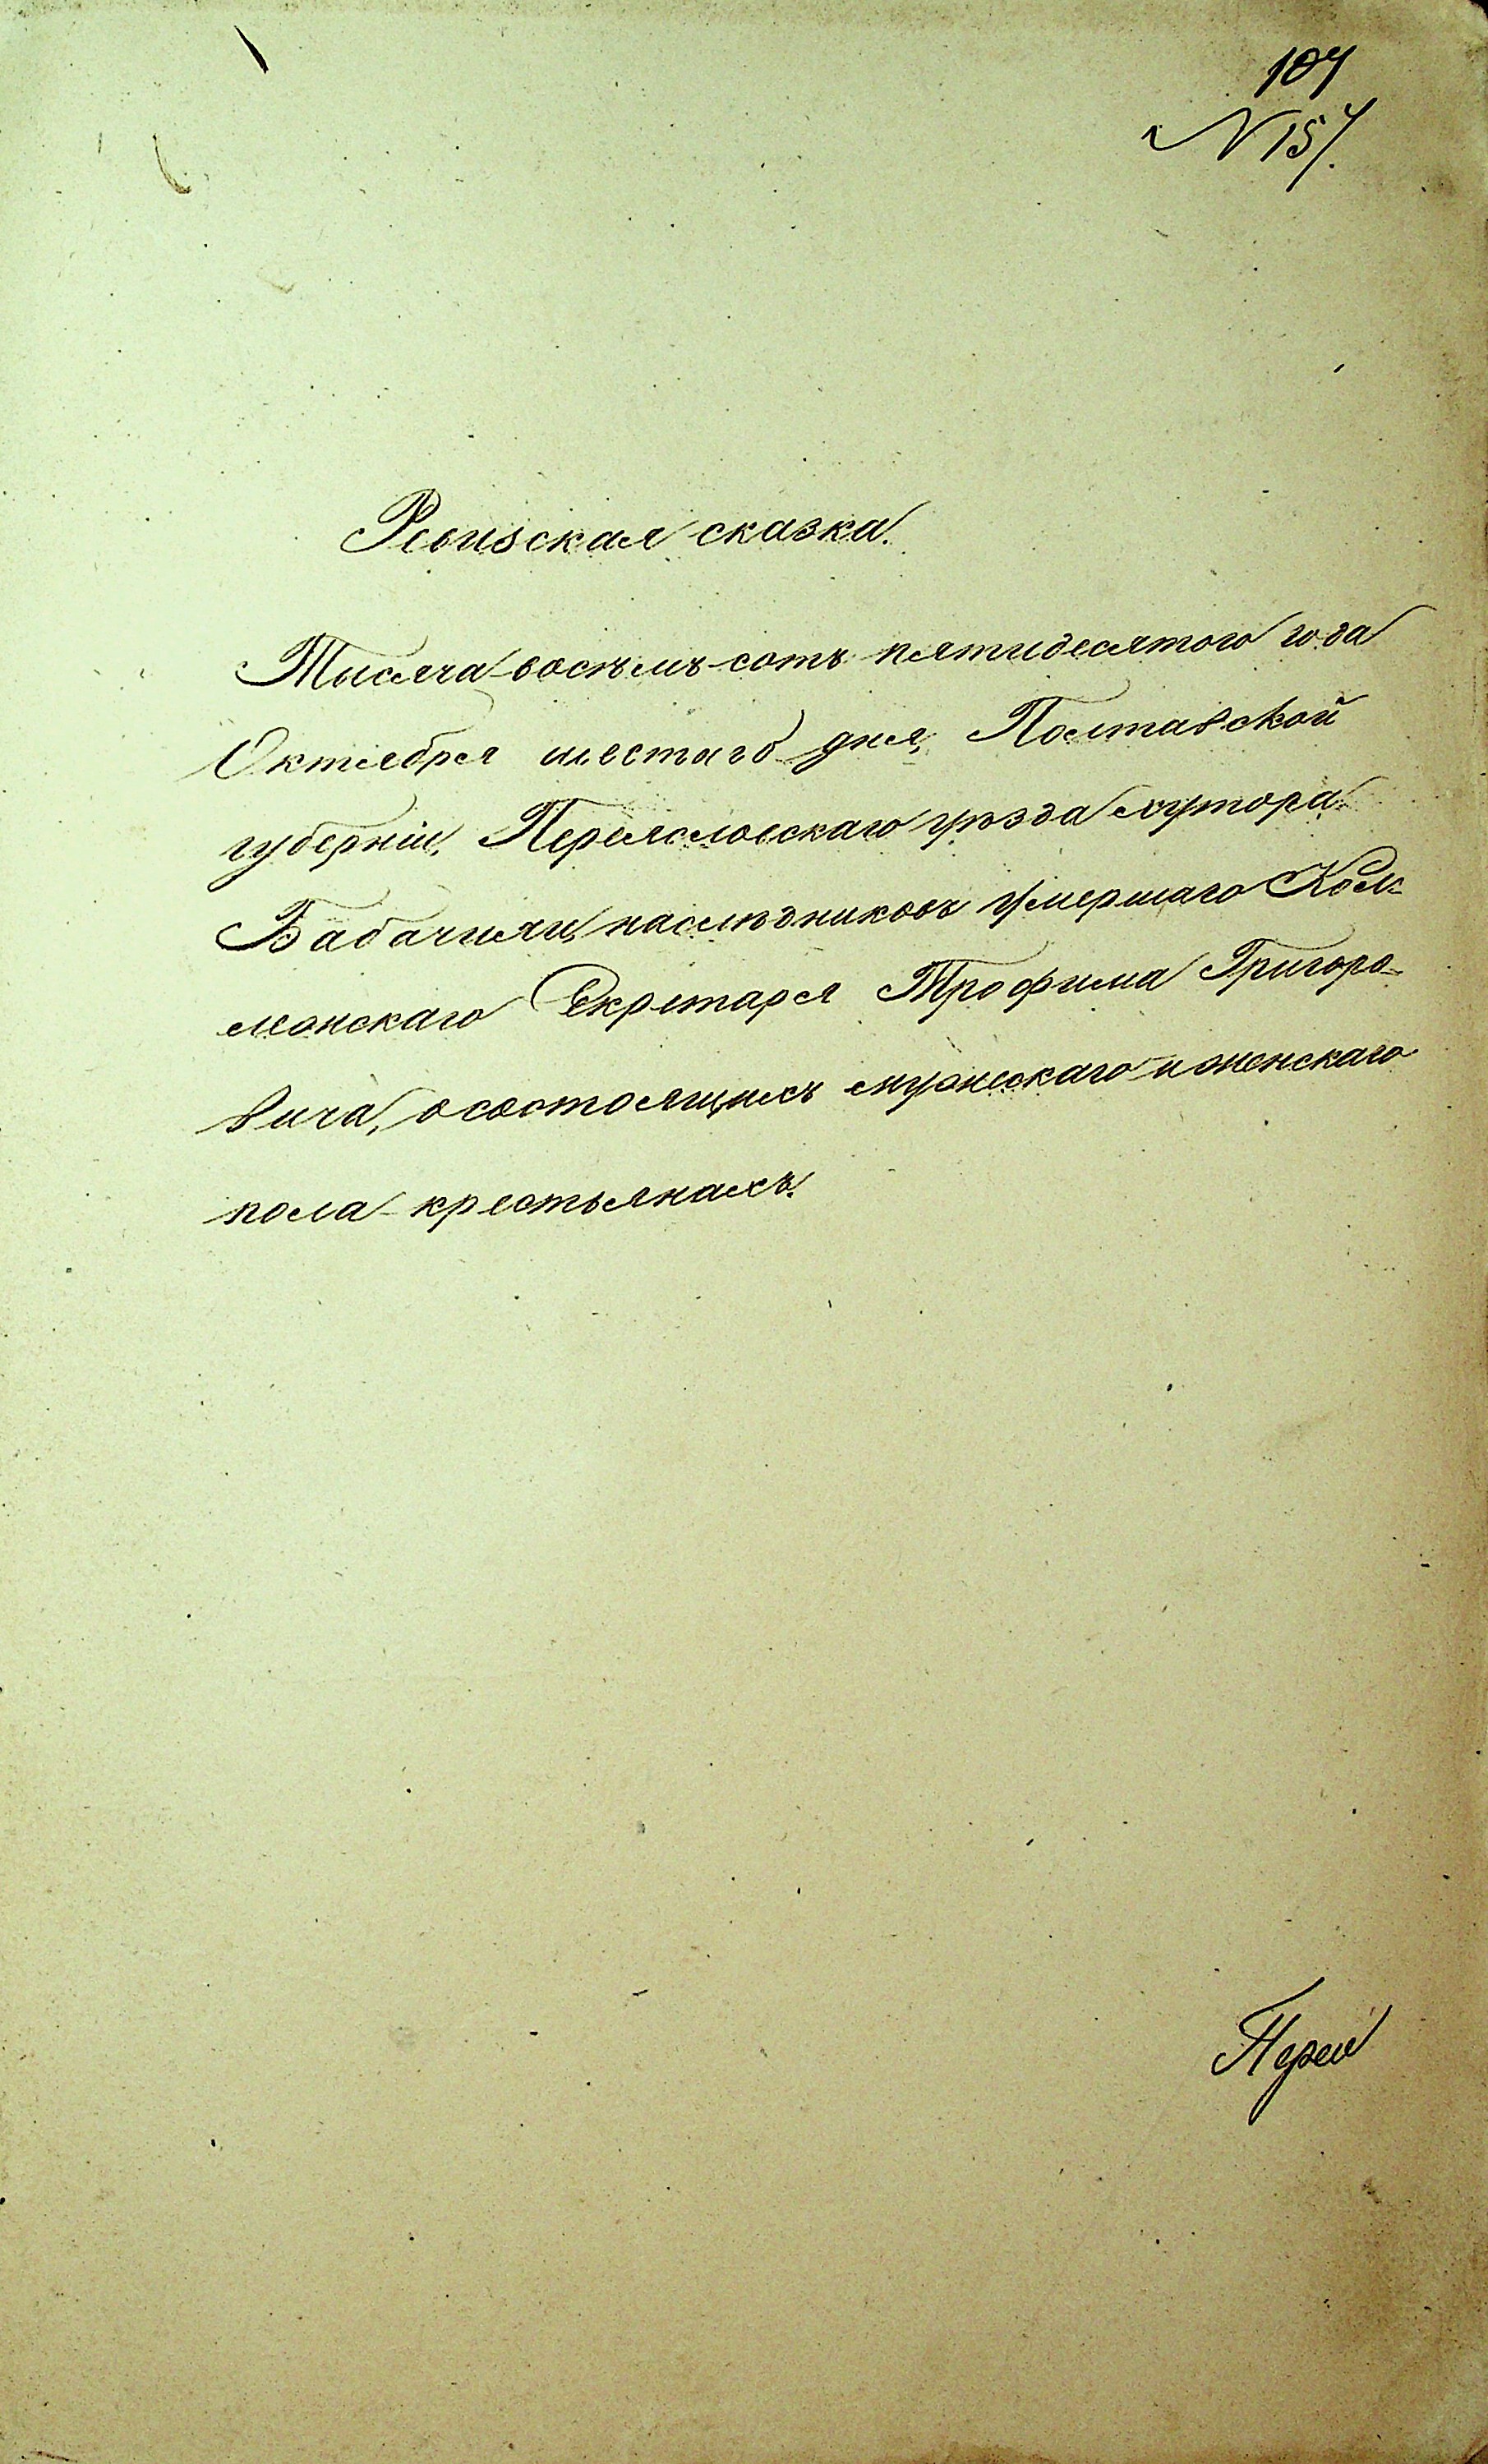 107
N 157.
Ревизская сказка.
Тысяча восѣмь сотъ пятидесятого года
Октября шестаго дня, Полтавской
губерніи, Переяславскаго уѣзда хутора
наслѣдниковъ умершаго Кол-
Секретаря Трофима Григоро-
вича, о состоящихъ мужескаго и женскаго
пола крестьянахъ.